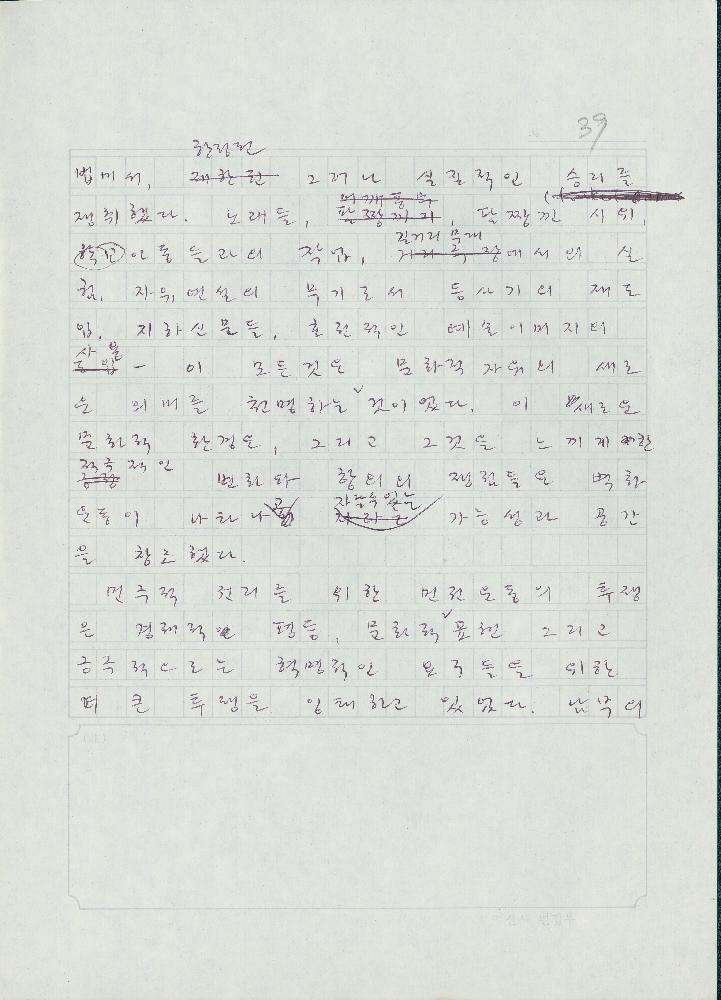 39
한정된
법에서, 제한된 그러나 실질적인 승리를
어깨동무
쟁취했다. 노래들, 팔짱끼기, 팔짱낀 시위,
길거리 무대
흑인 아동들과의 작업, 거리극장에서의 실
험, 자위연설의 무기로서 등사기의 재도
입, 지하신문들, 호전적인 예술이미지의
사용
도입 - 이 모든것은 문화적 자위의 새로
운 의미를 천명하는 것이었다. 이 새로운
문화적 환경은, 그리고 그것을 느끼게 한
적극적인
긍정 변화와 항의의 쟁점들은 벽화
자랄수있는
운동이 나타나고 자라는 가능성과 공간
을 창조했다.
민주적 권리를 위한 민권운동의 투쟁
은 경제적 평등, 문화적 표현 그리고
궁극적으로는 혁명적인 요구들을 위한
더 큰 투쟁을 잉태하고 있었다. 남부의